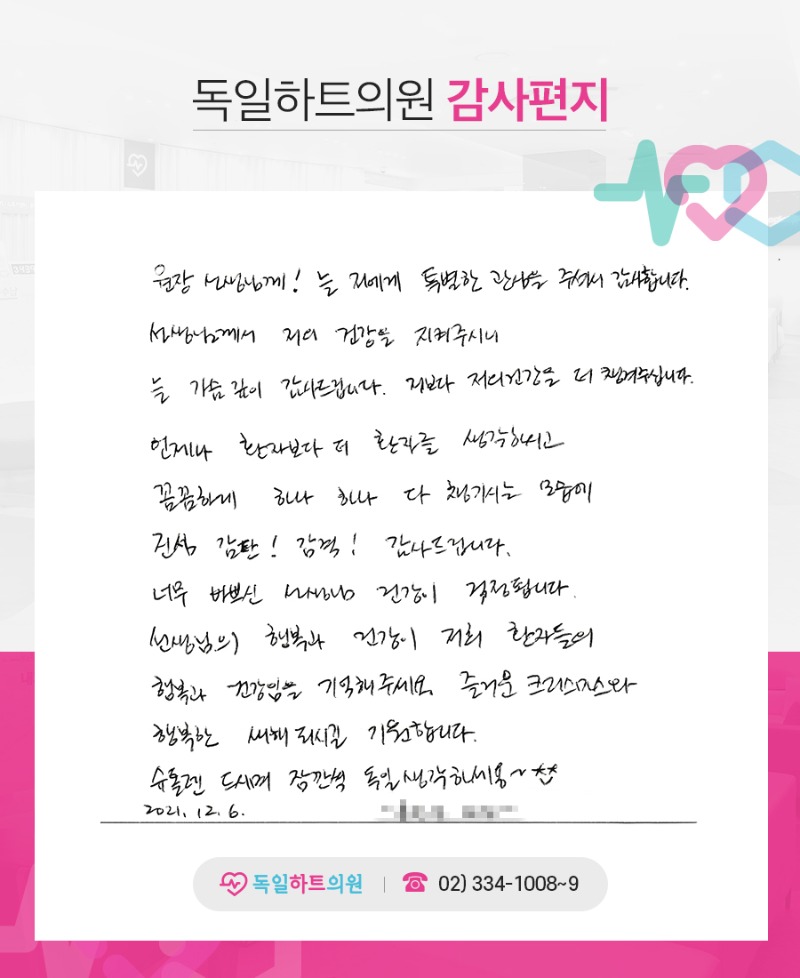 독일하트의원 감사편지
원장 선생님께! 늘 저에게 특별한 관심을 주셔서 감사합니다.
선생님께서 저의 건강을 지켜주시니
늘 가슴 깊이 감사드립니다. 저보다 저의건강을 더 챙겨주십니다.
언제나 환자보다 더 환자를 생각하시고
꼼꼼하게 하나 하나 다 챙기시는 모습에
진심 감탄! 감격! 감사드립니다.
너무 바쁘신 선생님 건강이 걱정됩니다.
선생님의 행복과 건강이 저희 환자들의
행복과 건강임을 기억해주세요. 즐거운 크리스마스와
행복한 새해 되시길 기원합니다.
슈톨렌 드시며 잠깐씩 독일 생각하세용~^^
2021. 12. 6.
독일하트의원 | 02) 334-1008~9